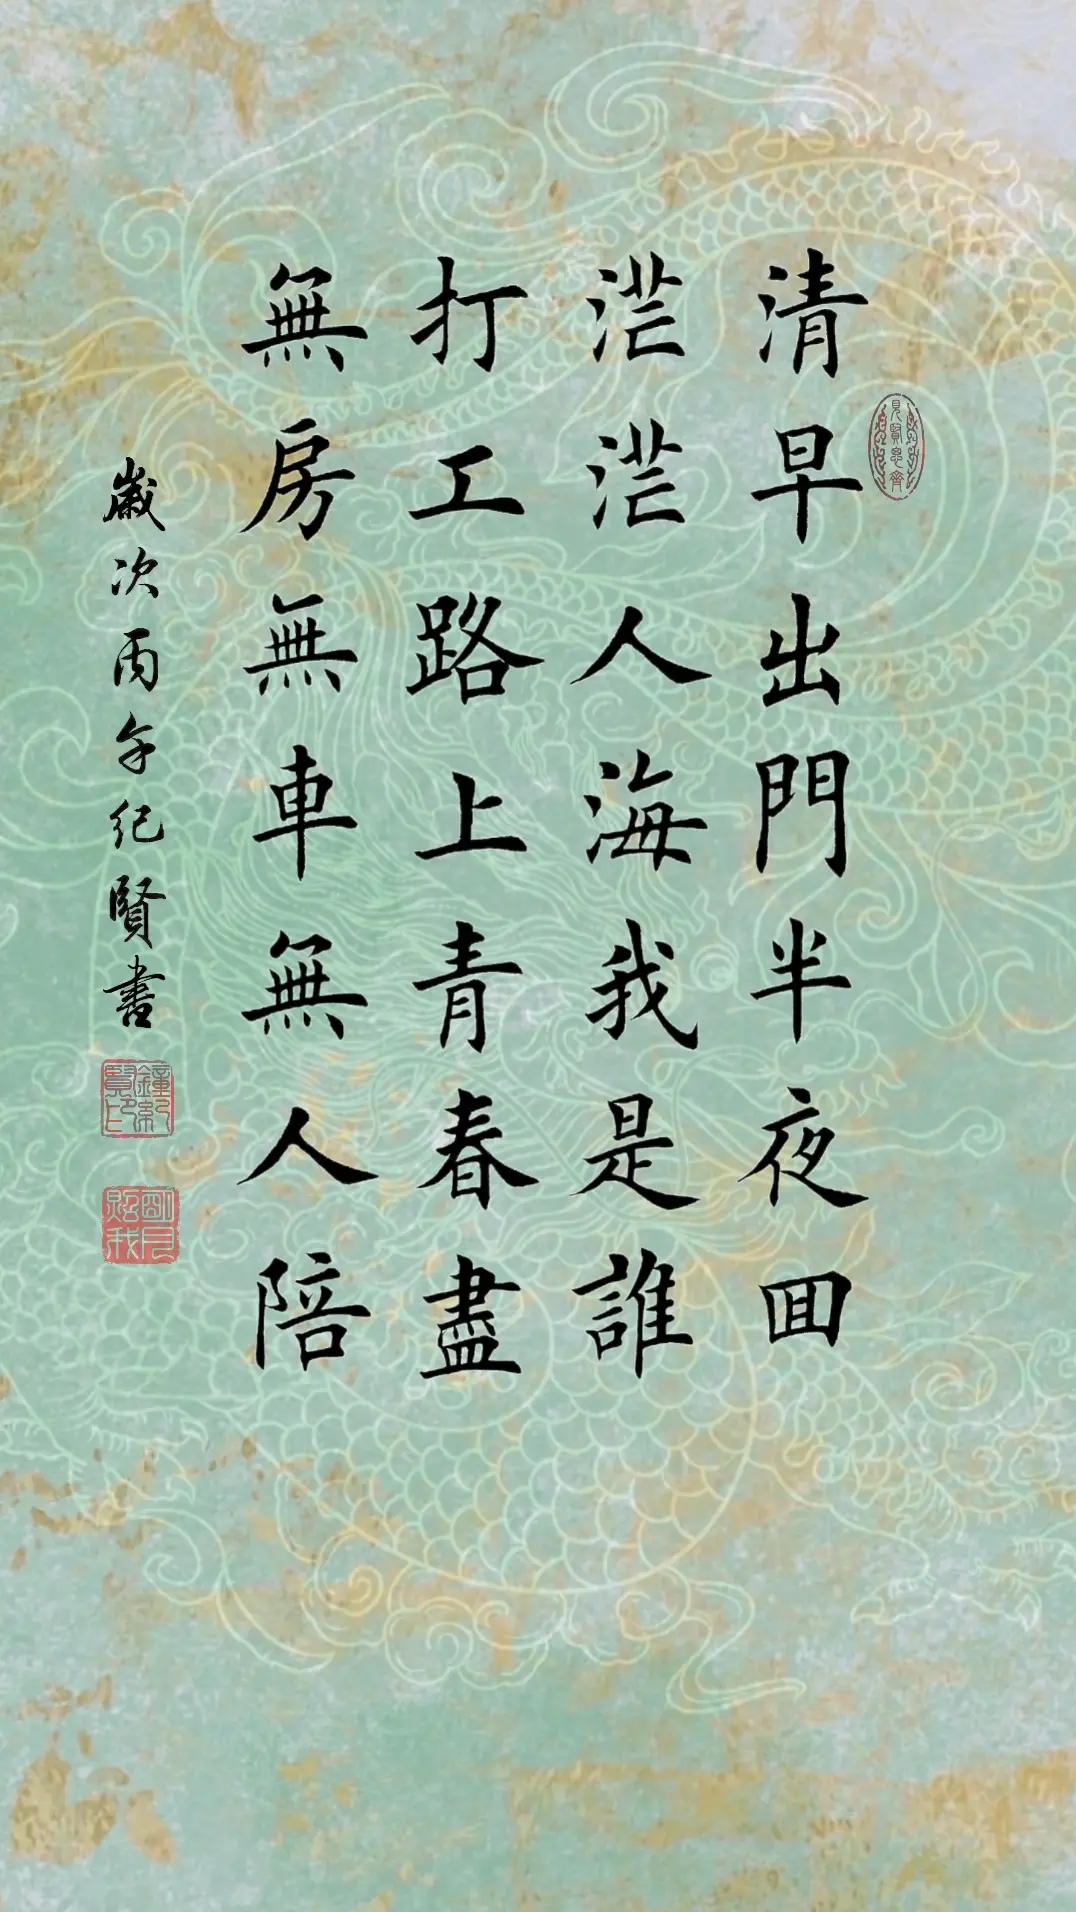 清早出門半夜回
茫茫人海我是誰
打工路上青春盡
無房無車無人陪
歲次丙午紀賢書
見賢思齊
鐘紀賢印